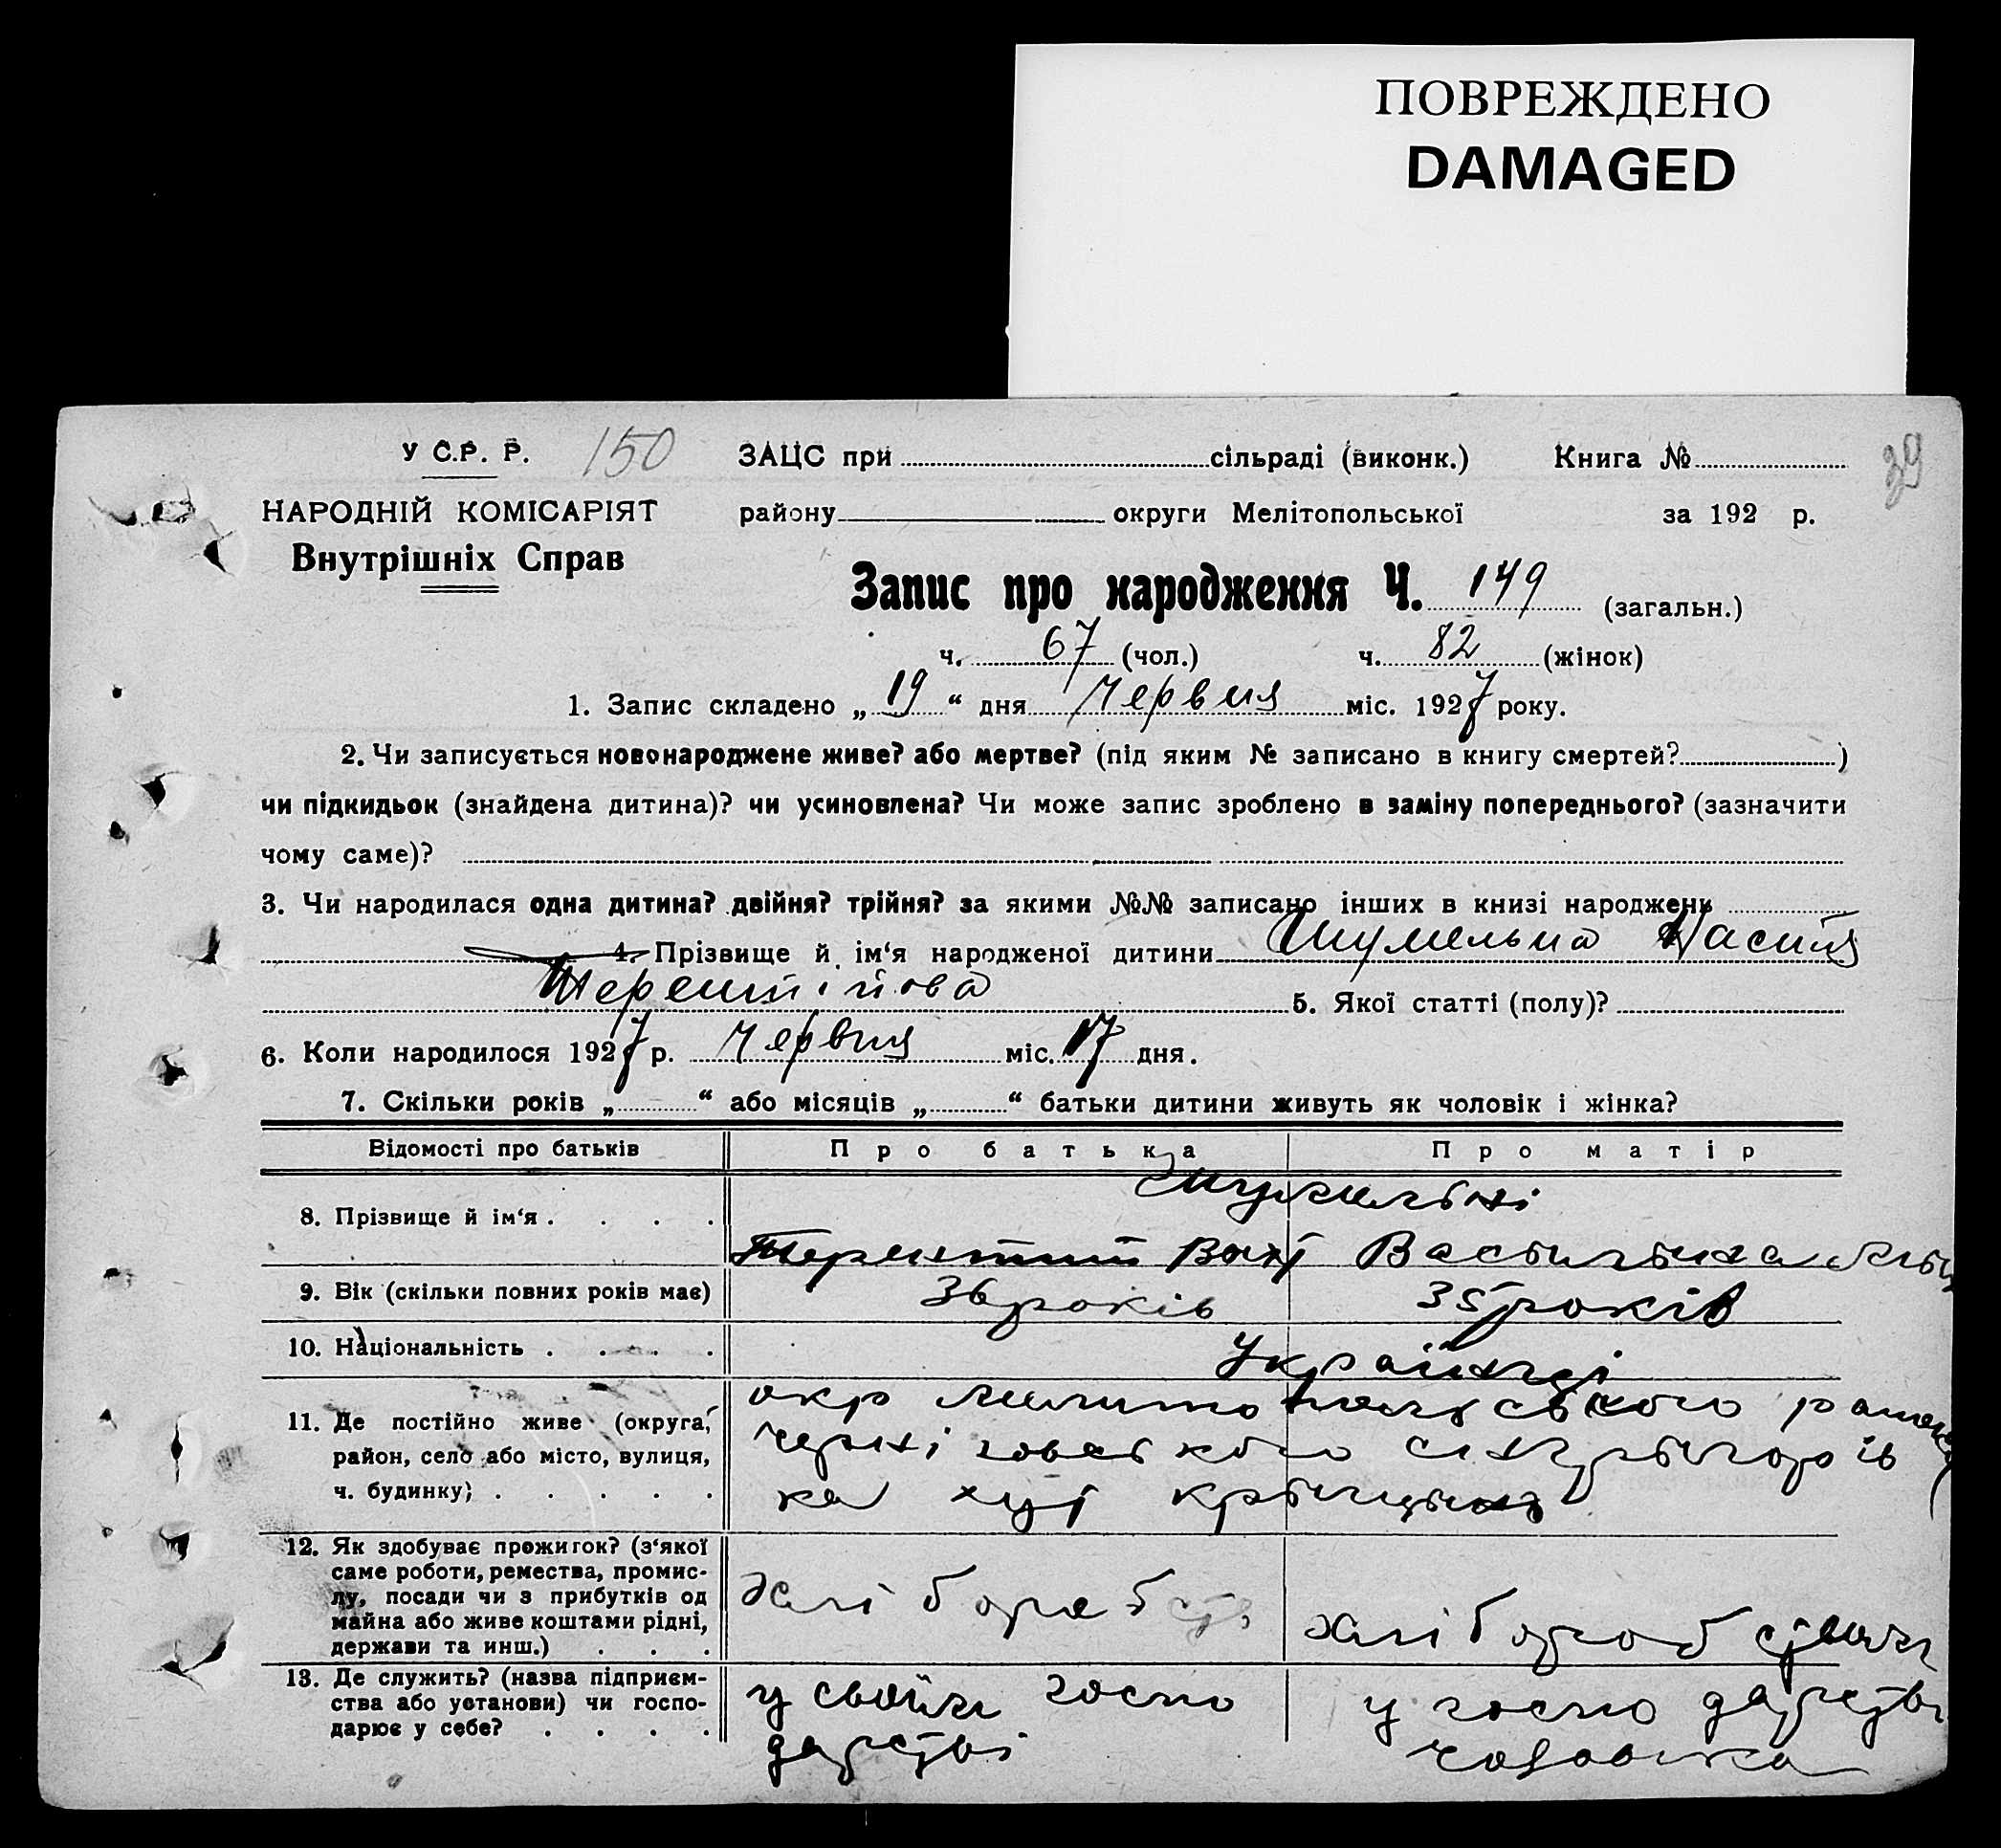 ПОВРЕЖДЕНО
DAMAGED
У С.Р. Р. 150 ЗАЦС при сільраді (виконк.) Книга № 39
НАРОДНІЙ КОМІСАРІЯТ району округи Мелітопольської за 192 р.
Внутрішніх Справ
Запис про народження Ч. 149 (загальн.)
ч. 67 (чол.) ч. 82 (жінок)
1. Запис складено „ 19 “ дня Червня міс. 1927 року.
2. Чи записується новонароджене живе? або мертве? (під яким № записано в книгу смертей? )
чи підкидьок (знайдена дитина)? чи усиновлена? Чи може запис зроблено в заміну попереднього? (зазначити
чому саме)?
3. Чи народилася одна дитина? двійня? трійня? за якими №№ записано інших в книзі народжень
4. Прізвище й ім‘я народженої дитини Шумельна Настя
Терентійова 5. Якої статті (полу)?
6. Коли народилося 1927 р. Червня міс. 17 дня.
7. Скільки років „ “ або місяців „ “ батьки дитини живуть як чоловік і жінка?
Відомості про батьків Про батька Про матір
8. Прізвище й ім‘я . . . . Шумельні
9. Вік (скільки повних років має) 36 років 35 років
10. Національність . . . . Українці
11. Де постійно живе (округа, окр
район, село або місто, вулиця,
ч. будинку) . . . . . ка хут
12. Як здобуває прожиток? (з‘якої
саме роботи, ремества, промис-
лу, посади чи з прибутків од
майна або живе коштами рідні,
держави та инш.) . . .
13. Де служить? (назва підприєм- у своїм госпо у господарстві
ства або установи) чи госпо- дарстві чоловіка
дарює у себе? . . . .